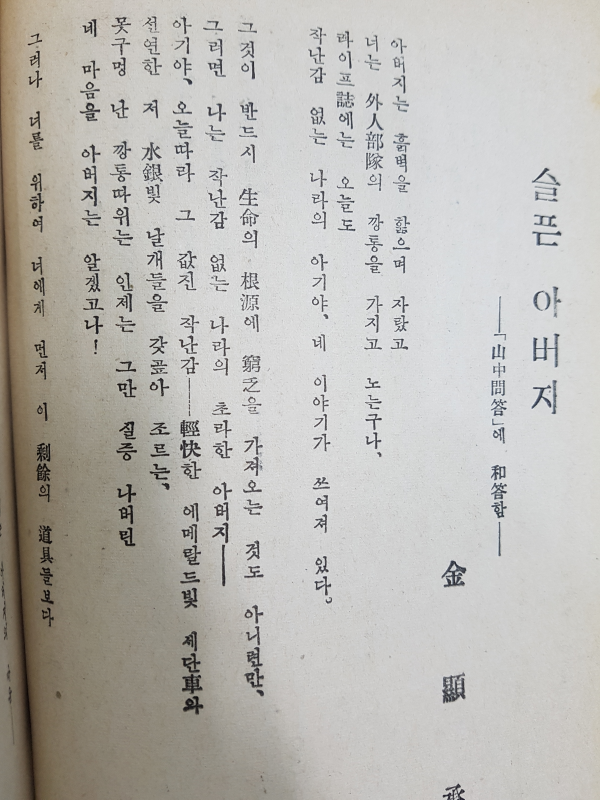 슬픈 아버지
——「山中問答」에 和答함——
金顯承
아버지는 흙벽을 핥으며 자랐고
너는 外人部隊의 깡통을 가지고 노는구나,
라이프誌에는 오늘도
작난감 없는 나라의 아기야, 네 이야기가 쓰여져 있다。
그것이 반드시 生命의 根源에 窮乏을 가져오는 것도 아니련만,
그러면 나는 작난감 없는 나라의 초라한 아버지——
아기야, 오늘따라 그 값진 작난감——輕快한 에메랄드빛 세단車와
선연한 저 水銀빛 날개들을 갖곺아 조르는,
못구멍 난 깡통따위는 인제는 그만 싫증 나버린
네 마음을 아버지는 알겠고나!
그러나 너를 위하여 너에게 먼저 이 剩餘의 道具들보다